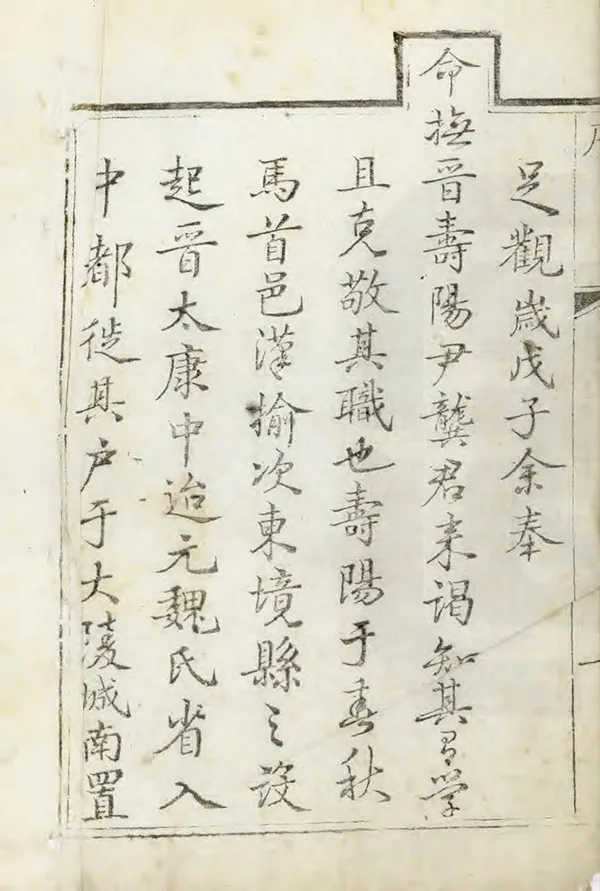 足觀歲戊子余奉
命撫晉壽陽尹龔君来謁知其有学
且克敬其職也壽陽于春秋
馬首邑漢揄次東境縣之設
起晋太康中迨元魏氏省入
中都徙其户于大陵城南置